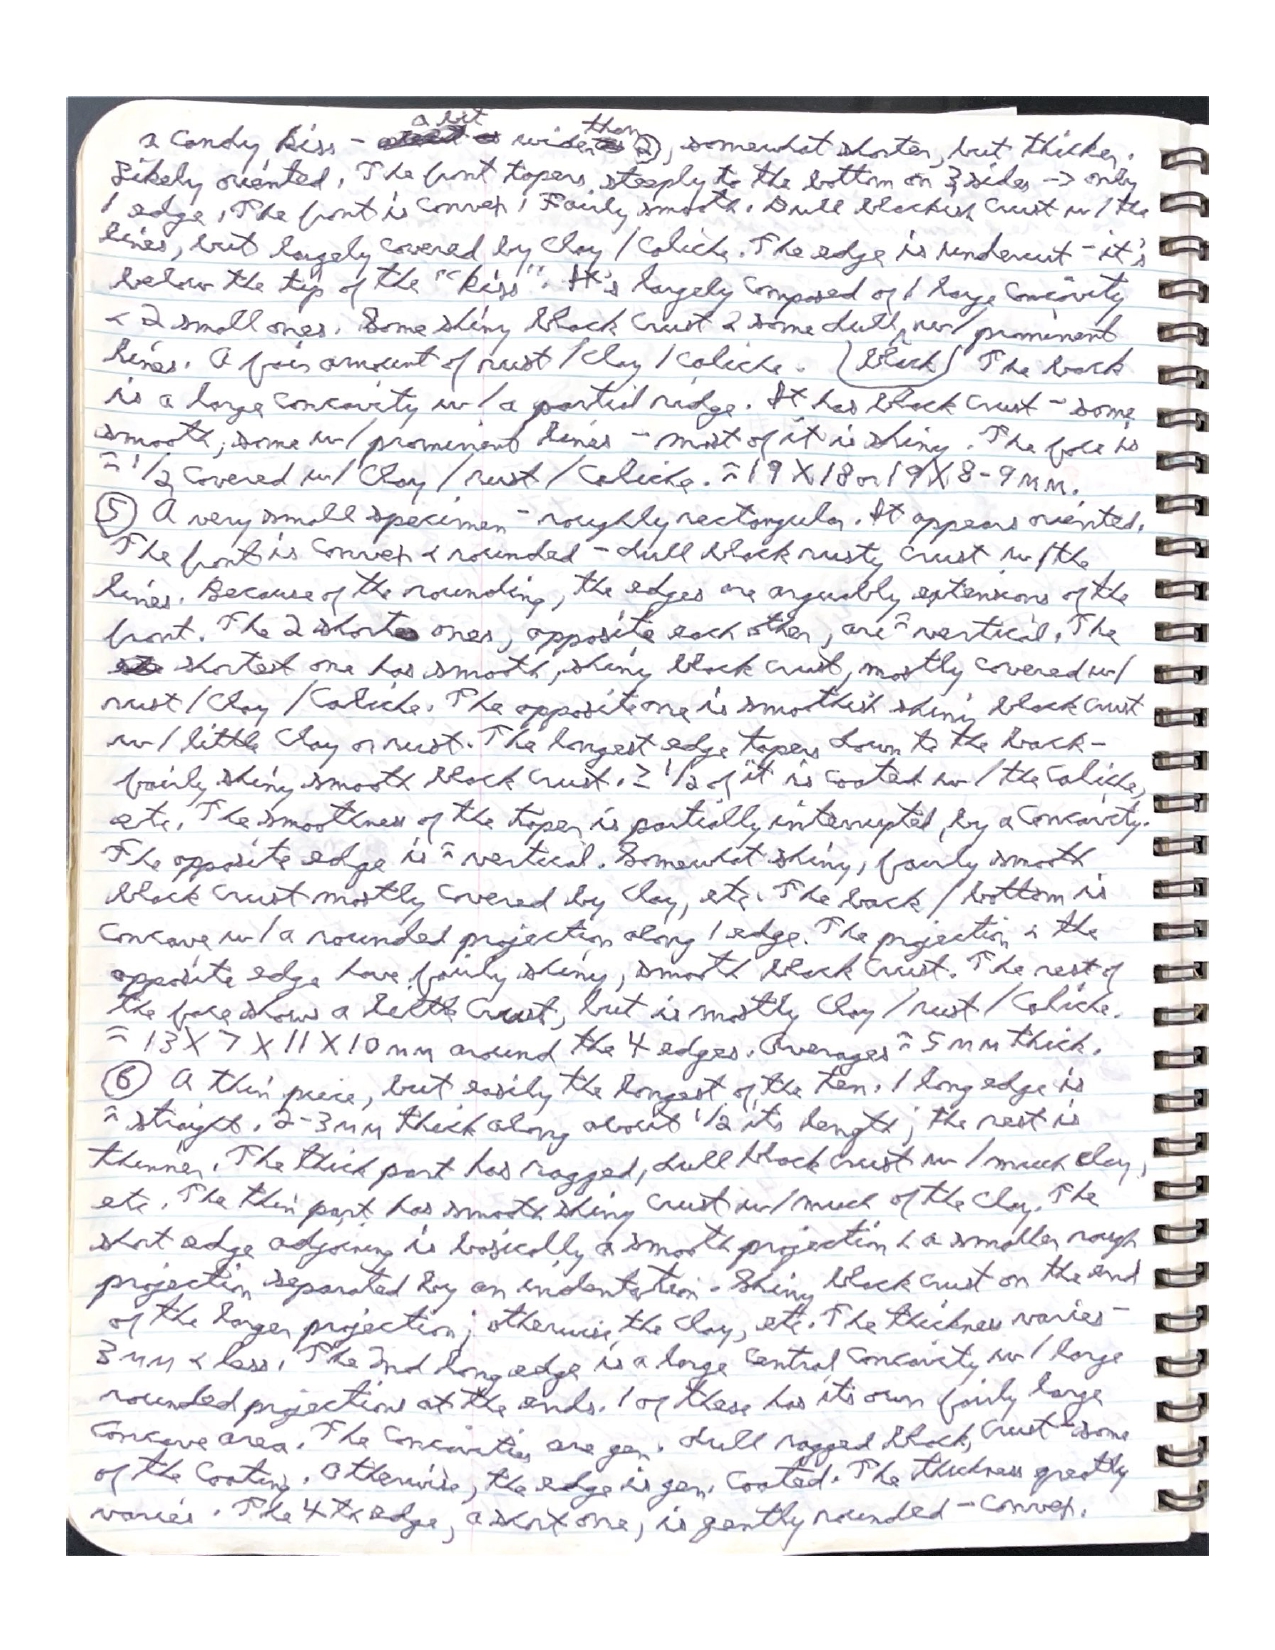 a bit than
a candy kiss - wider ②, somewhat shorter, but thicker.
Likely oriented. The front tapers steeply to the bottom on 3 sides → only
1 edge. The front is convex. Fairly smooth. Dull blackish crust w/ the
lines, but largely covered by clay/caliche. The edge is undercut - it's
below the tip of the "kiss". It's largely composed of 1 large concavity
& 2 small ones. Some shiny black crust & some dull, w/ prominent
lines. A fair amount of rust/clay/caliche. (black) The back
is a large concavity w/ a partial ridge. It has black crust - some
smooth, some w/ prominent lines - most of it is shiny. The face is
≈ 1/2 covered w/ clay/rust/caliche. ≈ 19 X 18 or 19 X 8-9 mm.
⑤ A very small specimen - roughly rectangular. It appears oriented.
The front is convex & rounded - dull black rusty crust w/ the
lines. Because of the rounding, the edges are arguably extensions of the
front. The 2 short ones, opposite each other, are ≈ vertical. The
shortest one has smooth, shiny black crust, mostly covered w/
rust/clay/caliche. The opposite one is smoothish shiny black crust
w/ little clay or rust. The longest edge tapers down to the back -
fairly shiny smooth black crust. ≥ 1/2 of it is coated w/ the caliche,
etc. The smoothness of the taper is partially interrupted by a concavity.
The opposite edge is ≈ vertical. Somewhat shiny, fairly smooth
black crust mostly covered by clay, etc. The back/bottom is
concave w/ a rounded projection along 1 edge. The projection & the
opposite edge have fairly shiny, smooth black crust. The rest of
the face shows a little crust, but is mostly clay/rust/caliche.
≈ 13 X 7 X 11 X 10 mm around the 4 edges. Averages ≈ 5 mm thick.
⑥ A thin piece, but easily the longest of the ten. 1 long edge is
≈ straight. 2-3 mm thick along about 1/2 its length; the rest is
thinner. The thick part has ragged, dull black crust w/ much clay,
etc. The thin part has smooth shiny crust w/ much of the clay. The
short edge adjoining is basically a smooth projection & a smaller rough
projection separated by an indentation. Shiny black crust on the end
of the larger projection; otherwise the clay, etc. The thickness varies -
3 mm & less. The 2nd long edge is a large central concavity w/ large
rounded projections at the ends. 1 of these has its own fairly large
concave area. The concavities are gen. dull ragged black crust - some
of the coating. Otherwise, the edge is gen. coated. The thickness greatly
varies. The 4th edge, a short one, is gently rounded - convex.